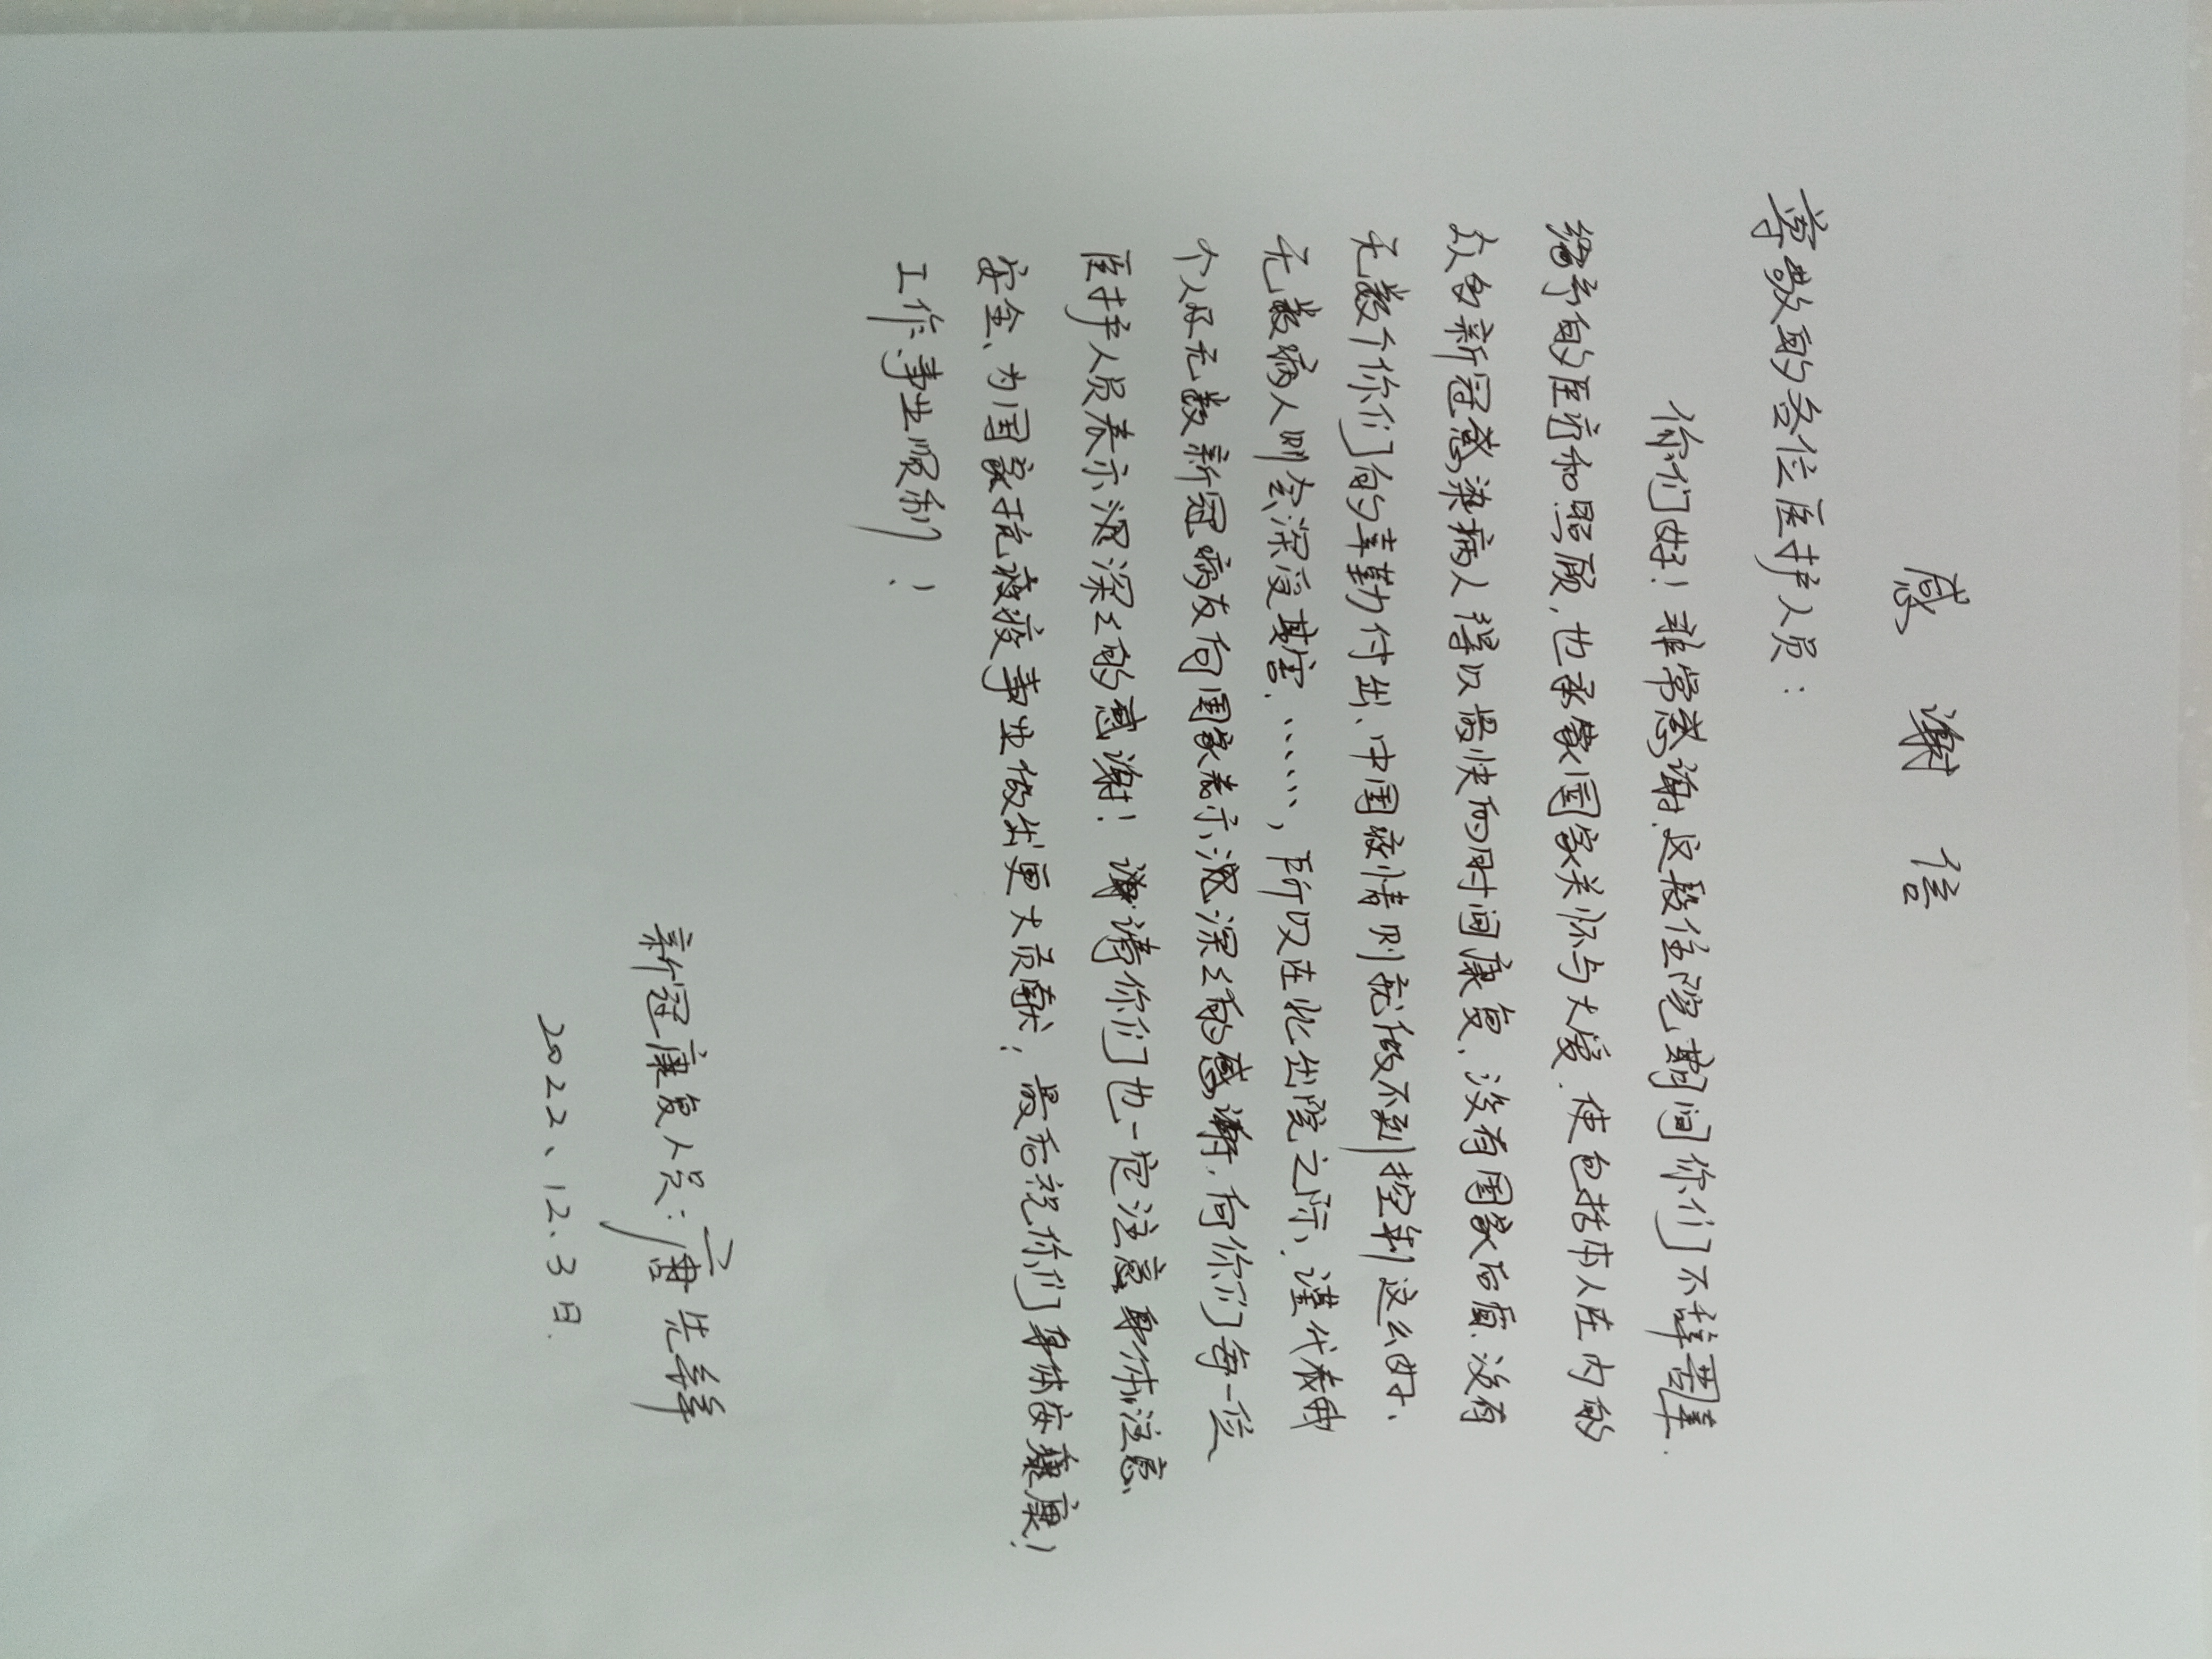 感谢信
尊敬的各位医护人员：
你们好！非常感谢这段住院期间你们不辞辛
给予的医疗和照顾，也承蒙国家关怀与大爱，使包括本人在内的
众多新冠感染病人得以最快的时间康复，没有国家后盾、没有
无数个你们的辛勤付出、中国疫情则就做不到控制这么好、
无数病人则会深受其害、……，所以在此出院之际、谨代表我
个人及无数新冠病友向国家表示深深的感谢，向你们每一位
医护人员表示深深的感谢！请你们也一定注意身体，注意
安全、为国家抗疫事业做出更大贡献；最后祝你们身体安康！
工作、事业顺利！
新冠康复人员：唐先
2022、12、3日.